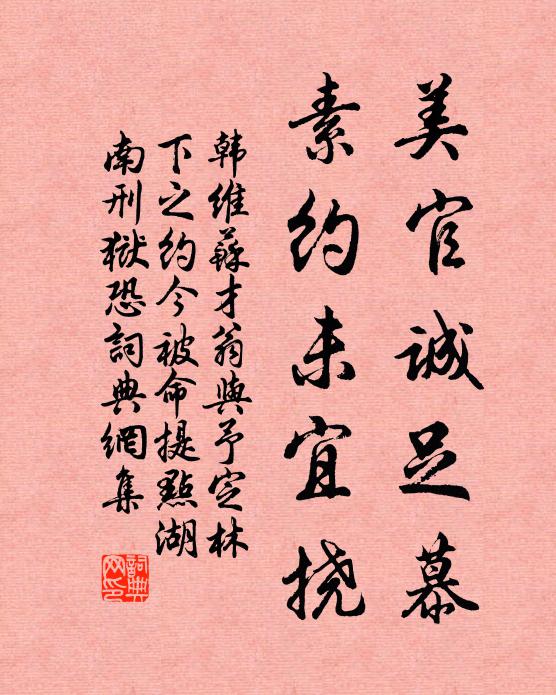 美官诚足慕
素约未宜挠
韩维苏才翁与予定林
下之约今被命提点湖
南刑狱恐词典网集
词典网印